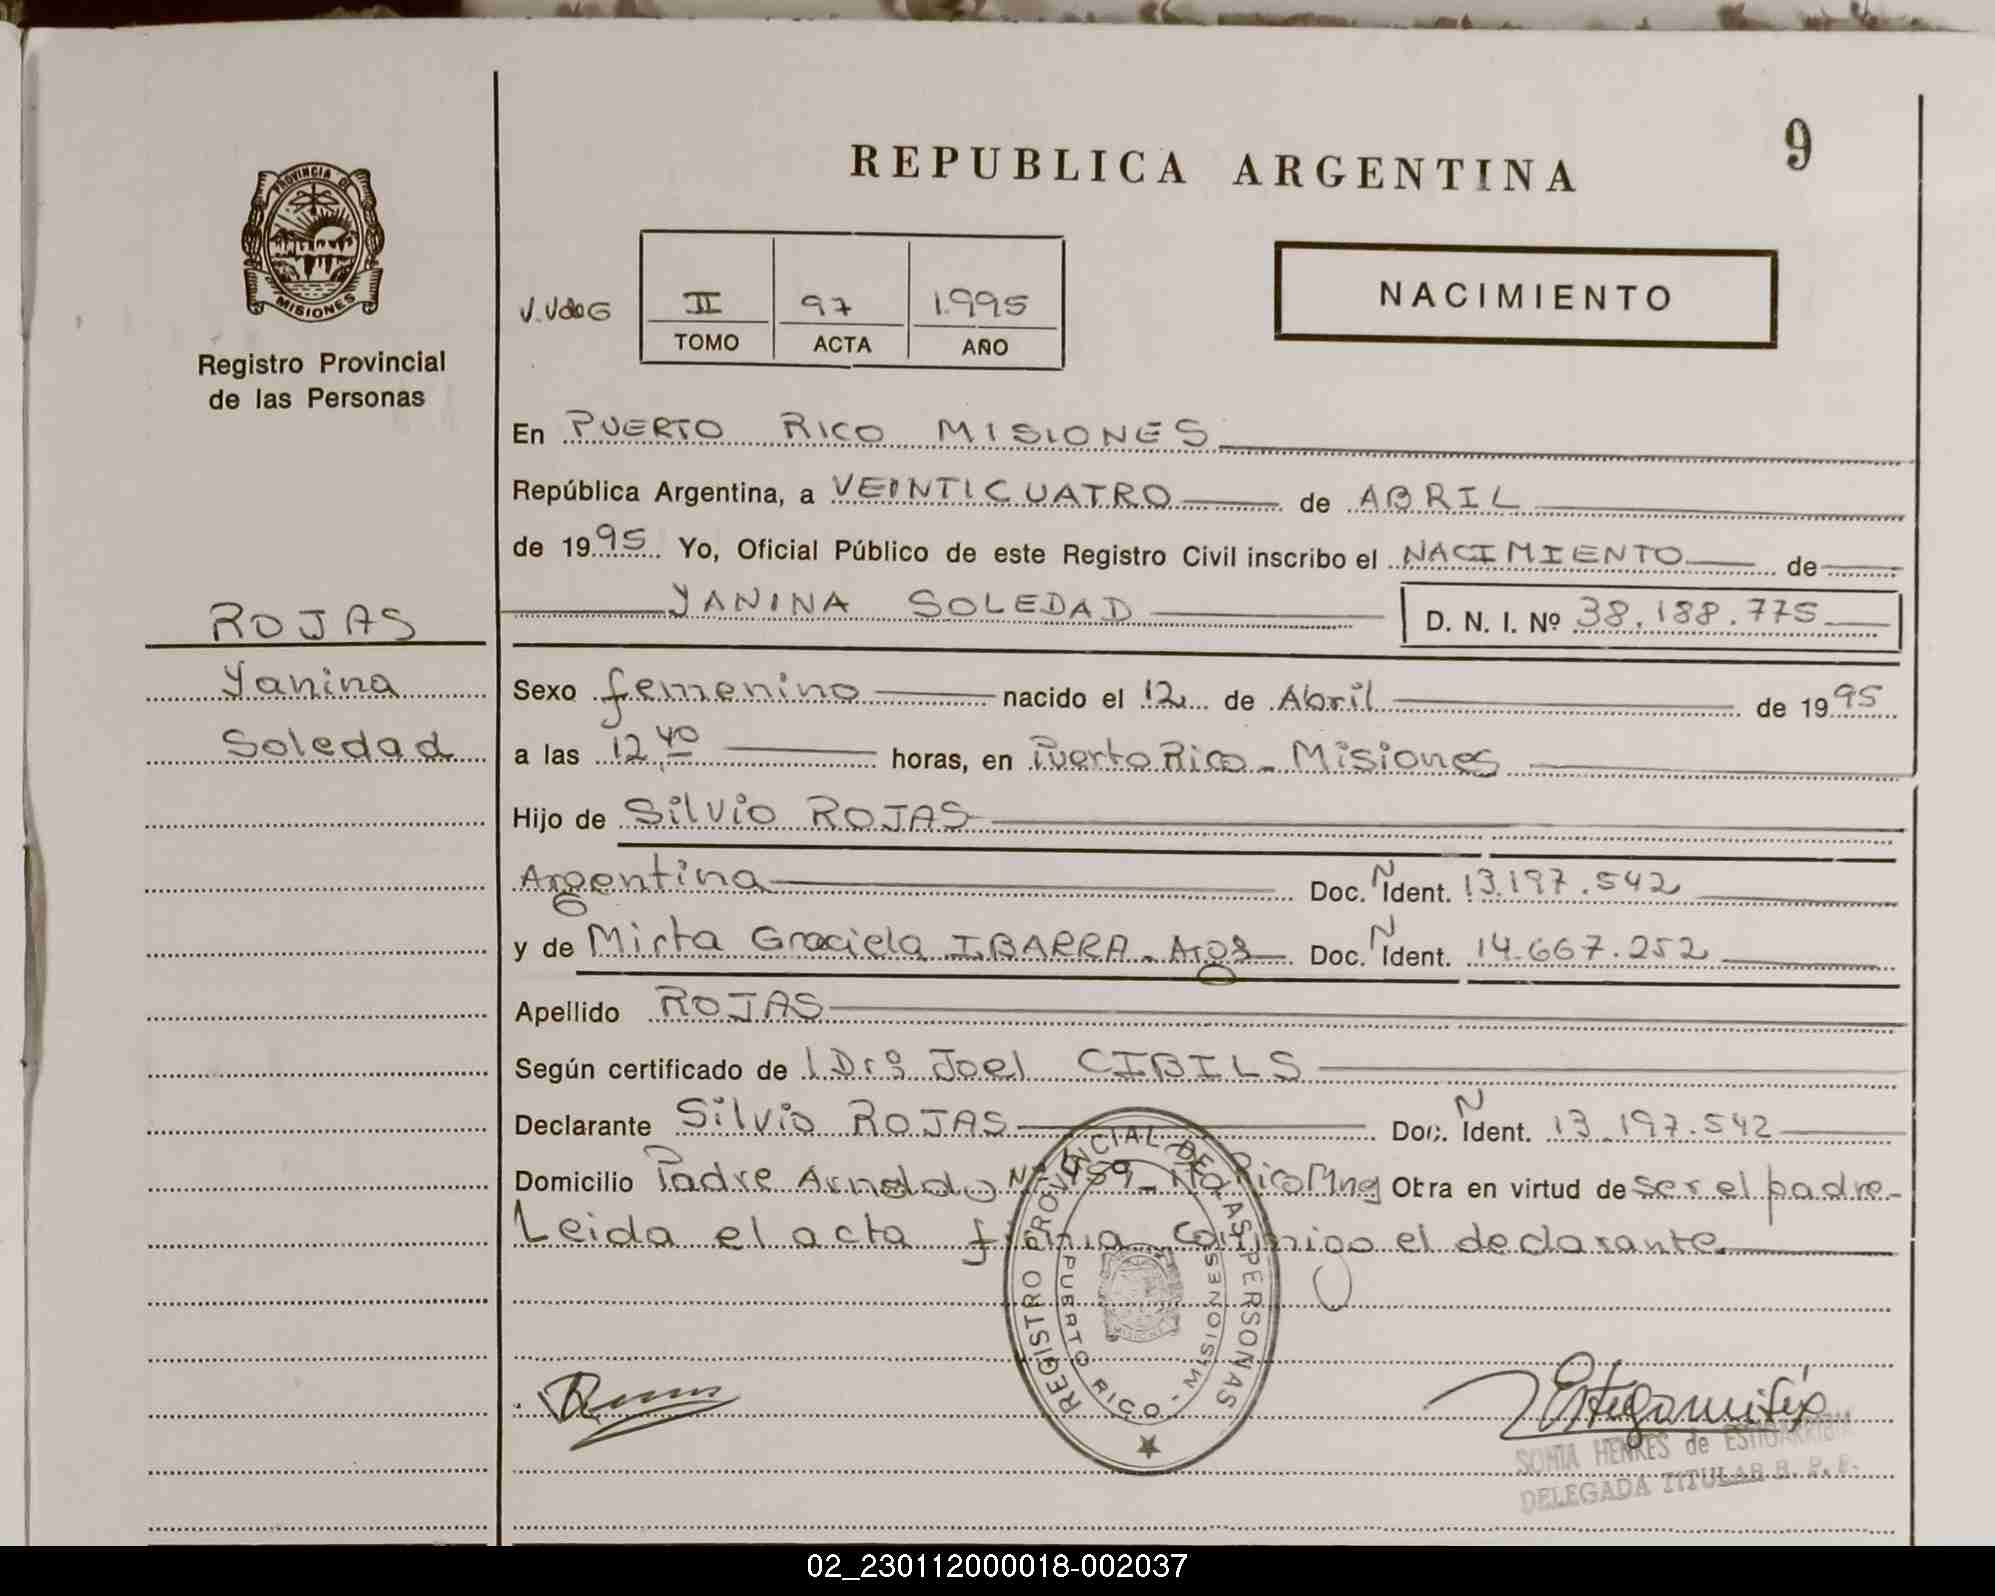 9
REPUBLICA ARGENTINA
PROVINCIA DE
MISIONES
Registro Provincial
de las Personas
NACIMIENTO
II 97 1.995
TOMO ACTA AÑO
En PUERTO RICO MISIONES
República Argentina, a VEINTICUATRO de ABRIL
de 1995 Yo, Oficial Público de este Registro Civil inscribo el NACIMIENTO de
YANINA SOLEDAD D. N. I. Nº 38.188.775
ROJAS
Yanina
Soledad
Sexo femenino nacido el 12 de Abril de 1995
a las 12,40 horas, en Puerto Rico - Misiones
Hijo de Silvio ROJAS
Argentina Doc. N Ident. 13.197.542
y de Mirta Graciela IBARRA - Arg. Doc. N Ident. 14.667.252
Apellido ROJAS
Según certificado de Joel CIBILS
Declarante Silvio ROJAS Doc. N Ident. 13.197.542
Domicilio Padre Arnoldo Rico Mnes Otra en virtud de ser el padre-
Leida el acta firma conmigo el declarante
REGISTRO PROVINCIAL DE LAS PERSONAS
PUERTO RICO - MISIONES
SONIA HENKES de ESTIGARRIBIA
DELEGADA TITULAR R. P. P.
02_230112000018-002037